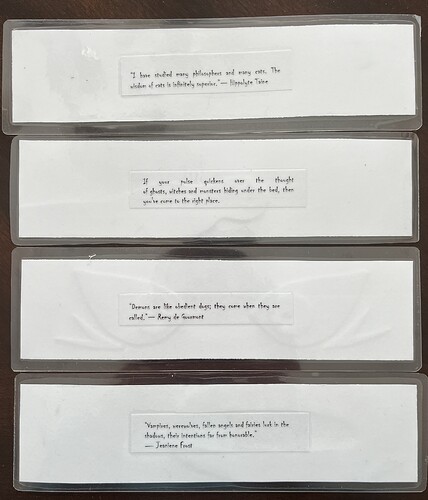 "I have studied many philosophers and many cats. The
wisdom of cats is infinitely superior." — Hippolyte Taine
If your pulse quickens over the thought
of ghosts, witches and monsters hiding under the bed, then
you've come to the right place.
"Demons are like obedient dogs; they come when they are
called." — Remy de Gourmont
"Vampires, werewolves, fallen angels and fairies lurk in the
shadows, their intentions far from honorable."
— Jeaniene Frost